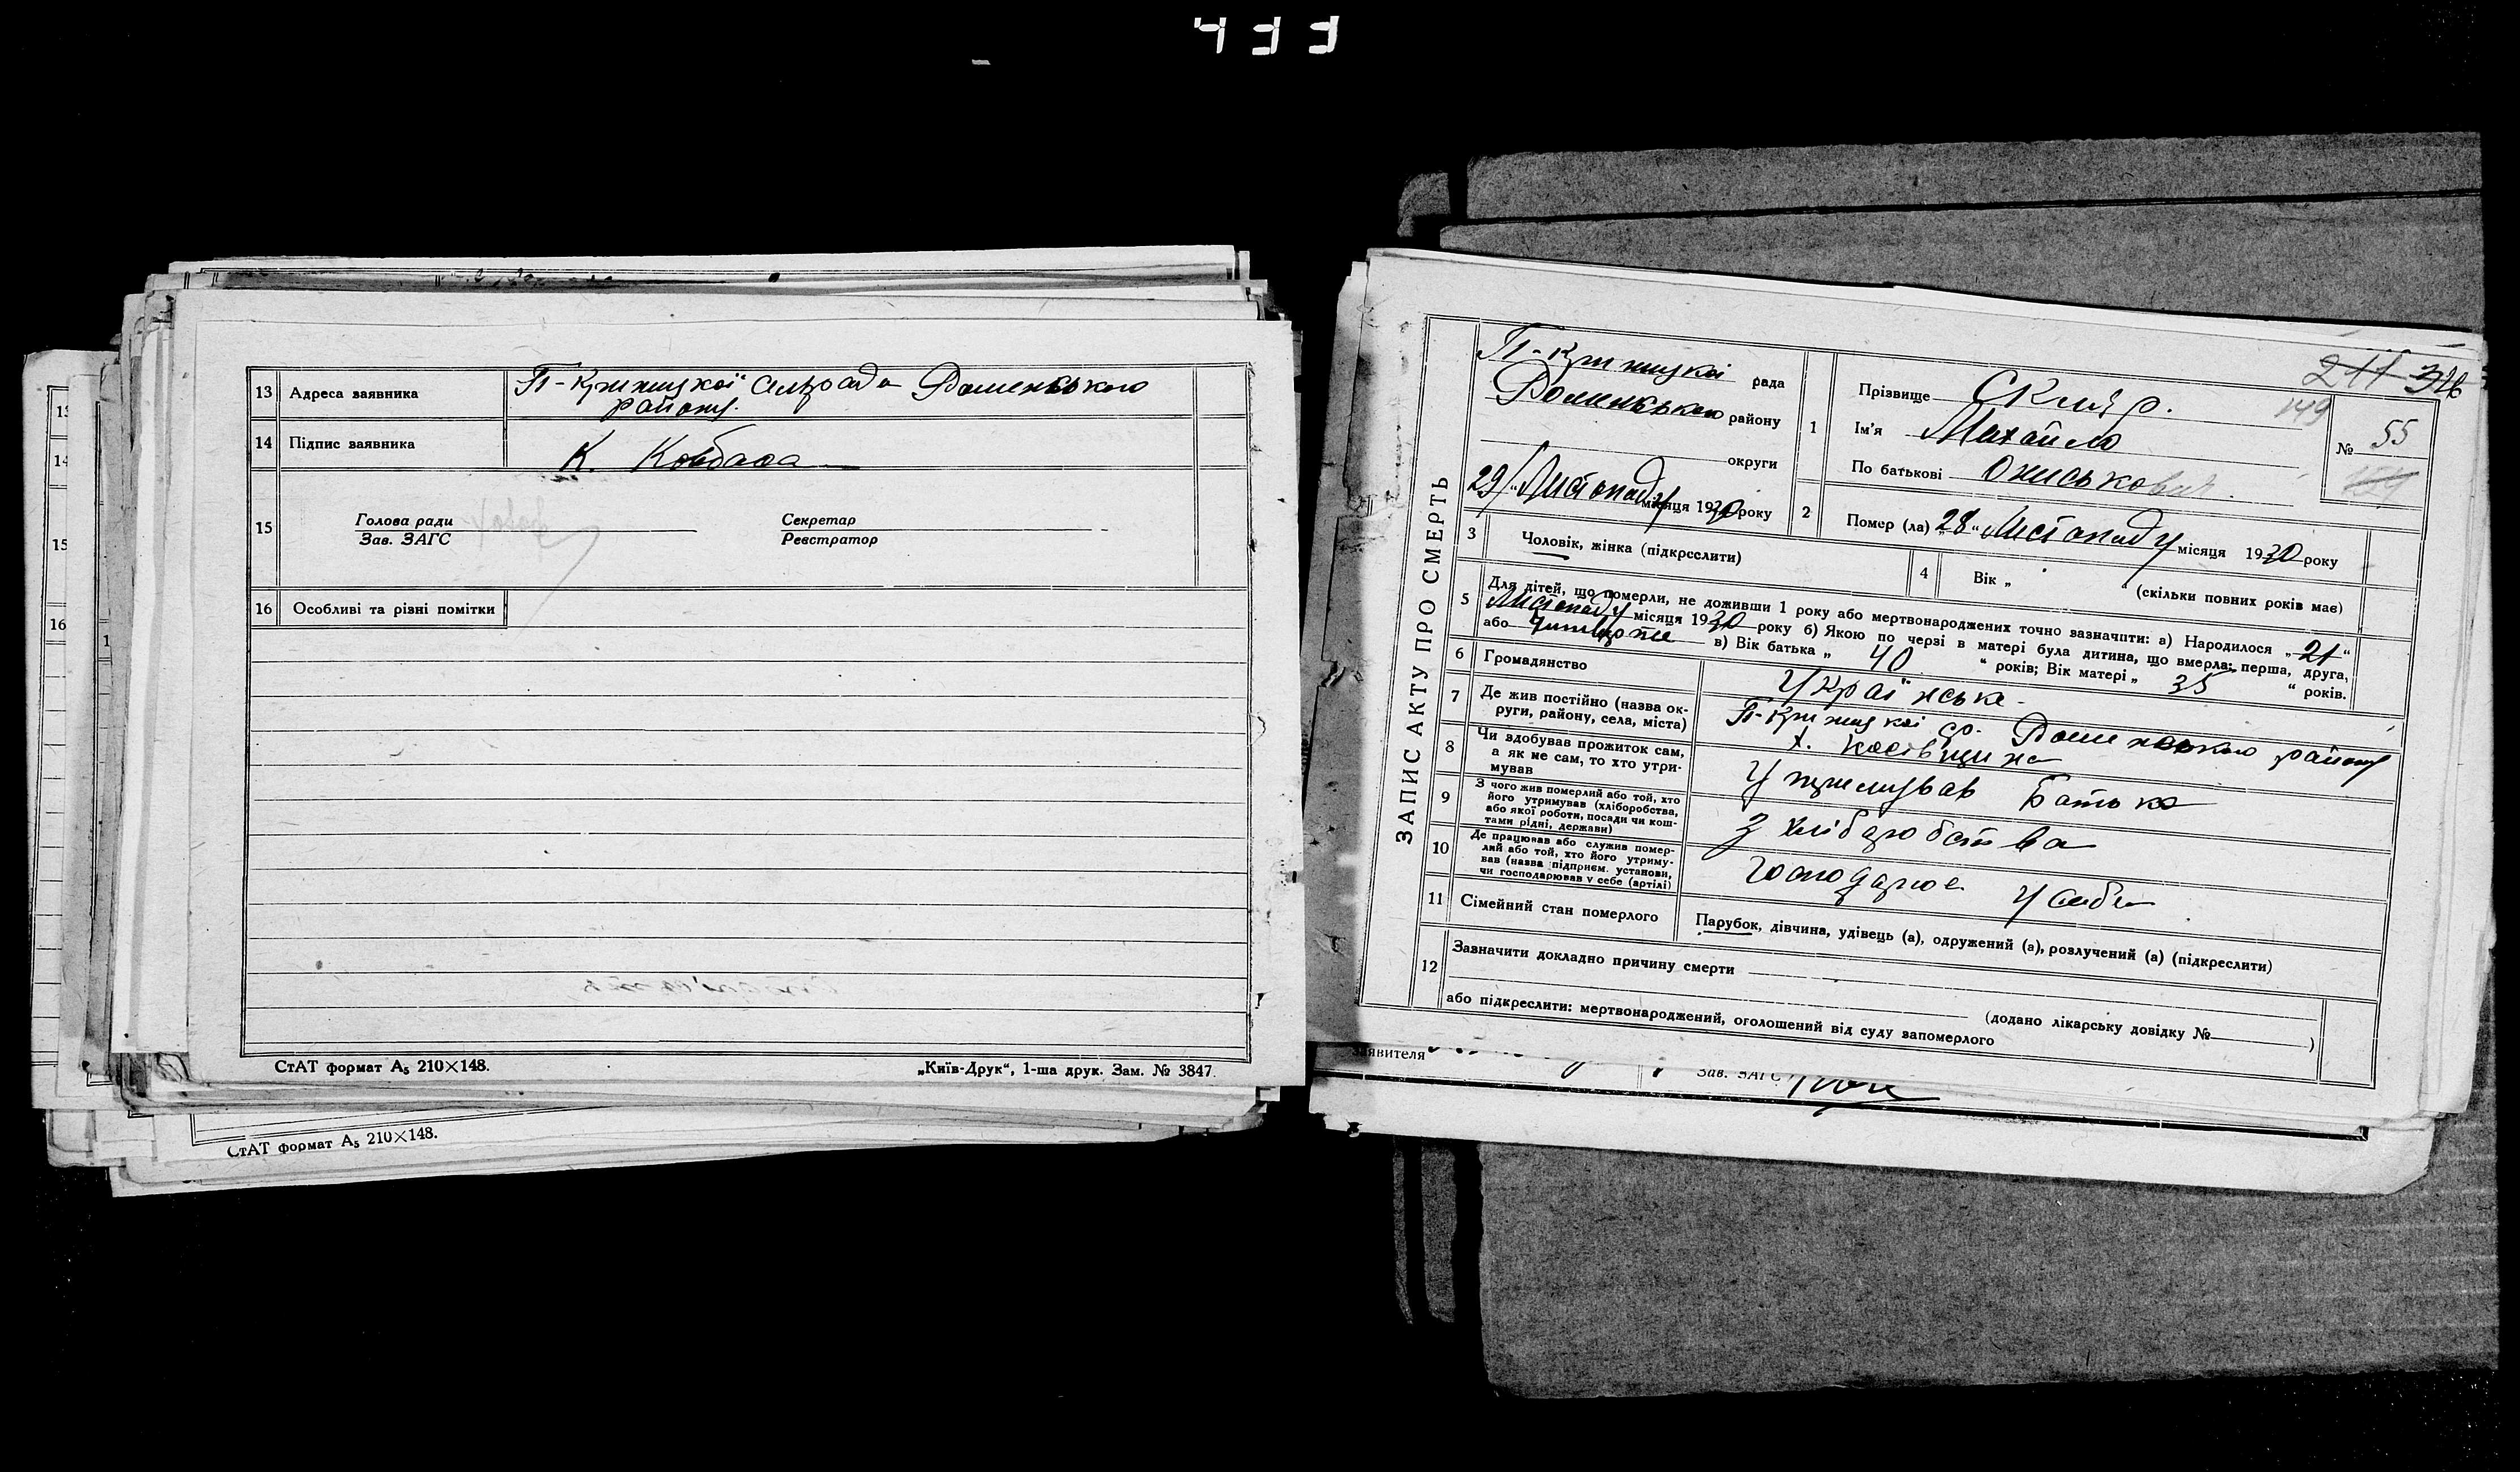 433
13 Адреса заявника П-Криницкої сільрада Роменського
району.
14 Підпис заявника К. Ковбаса
15 Голова ради Секретар
Зав. ЗАГС Реєстратор
16 Особливі та різні помітки
СтАТ формат А₅ 210×148. „Київ-Друк“, 1-ша друк. Зам. № 3847.
СтАТ формат А₅ 210×148.
ЗАПИС АКТУ ПРО СМЕРТЬ
П-Криницкої рада
Роменського району
округи
29 „Листопаду місяця 1930 року
211 326
149
№ 55
1 Прізвище Скляр.
Ім'я Михайло
По батьковіОниськович.
2 Помер (ла) „28“ Листопаду місяця 1930 року
3 Чоловік, жінка (підкреслити)
4 Вік „ “ (скільки повних років має)
5 Для дітей, що померли, не доживши 1 року або мертвонароджених точно зазначити: а) Народилося „21“
Листопаду місяця 1930 року б) Якою по черзі в матері була дитина, що вмерла: перша, друга,
або Читверте в) Вік батька „ 40 “ років; Вік матері „ 35 “ років.
6 Громадянство Українське.
7 Де жив постійно (назва округи, району, села, міста) П-Криницкої ср. Роменського району
х. Костівщина
8 Чи здобував прожиток сам,
а як не сам, то хто утри-
мував Утримував Батько
9 З чого жив померлий або той, хто
його утримував (хліборобства,
або якої роботи, посади чи кош-
тами рідні, держави) З хліборобства
10 Де працював або служив помер-
лий або той, хто його утриму-
вав (назва підприєм. установи,
чи господарював у себе (артілі) Господарює у себе
11 Сімейний стан померлого Парубок, дівчина, удівець (а), одружений (а), розлучений (а) (підкреслити)
12 Зазначити докладно причину смерти
(додано лікарську довідку № )
або підкреслити: мертвонароджений, оголошений від суду запомерлого
Заявителя
Зав. ЗАГС